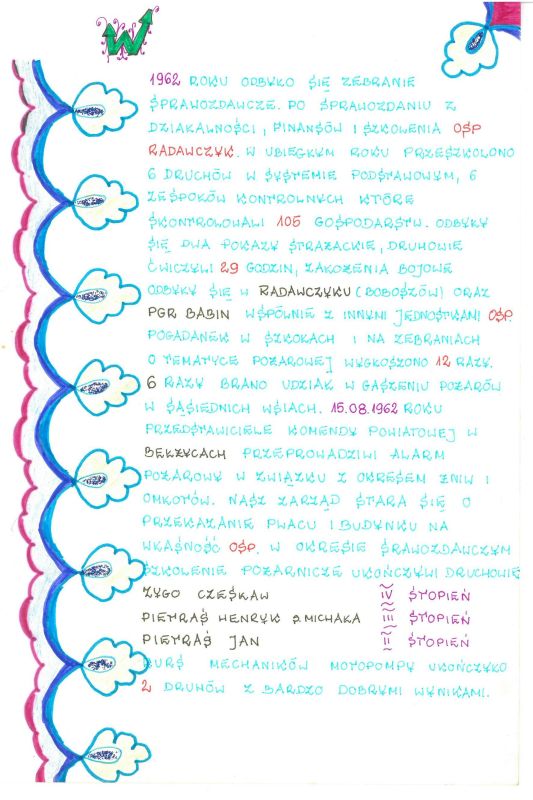 W
1962 ROKU ODBYŁO SIĘ ZEBRANIE
SPRAWOZDAWCZE. PO SPRAWOZDANIU Z
DZIAŁALNOŚCI, FINANSÓW I SZKOLENIA OSP
RADAWCZYK. W UBIEGŁYM ROKU PRZESZKOLONO
6 DRUCHÓW W SYSTEMIE PODSTAWOWYM, 6
ZESPOŁÓW KONTROLNYCH KTÓRE
SKONTROLOWALI 105 GOSPODARSTW. ODBYŁY
SIĘ DWA POKAZY STRAŻACKIE, DRUHOWIE
ĆWICZYLI 29 GODZIN, ZAŁOŻENIA BOJOWE
ODBYŁY SIĘ W RADAWCZYKU (BOBOSZÓW) ORAZ
PGR BABIN WSPÓLNIE Z INNYMI JEDNOSTKAMI OSP.
POGADANEK W SZKOŁACH I NA ZEBRANIACH
O TEMATYCE POŻAROWEJ WYGŁOSZONO 12 RAZY.
6 RAZY BRANO UDZIAŁ W GASZENIU POŻARÓW
W SĄSIEDNICH WSIACH. 15.08.1962 ROKU
PRZEDSTAWICIELE KOMENDY POWIATOWEJ W
BEŁŻYCACH PRZEPROWADZILI ALARM
POŻAROWY W ZWIĄZKU Z OKRESEM ŻNIW I
OMŁOTÓW. NASZ ZARZĄD STARA SIĘ O
PRZEKAZANIE PLACU I BUDYNKU NA
WŁASNOŚĆ OSP. W OKRESIE SRAWOZDAWCZYM
SZKOLENIE POŻARNICZE UKOŃCZYLI DRUCHOWIE
ŻYGO CZESŁAW IV STOPIEŃ
PIETRAŚ HENRYK S. MICHAŁA III STOPIEŃ
PIETRAŚ JAN II STOPIEŃ
KURS MECHANIKÓW MOTOPOMPY UKOŃCZYŁO
2 DRUHÓW Z BARDZO DOBRYMI WYNIKAMI.